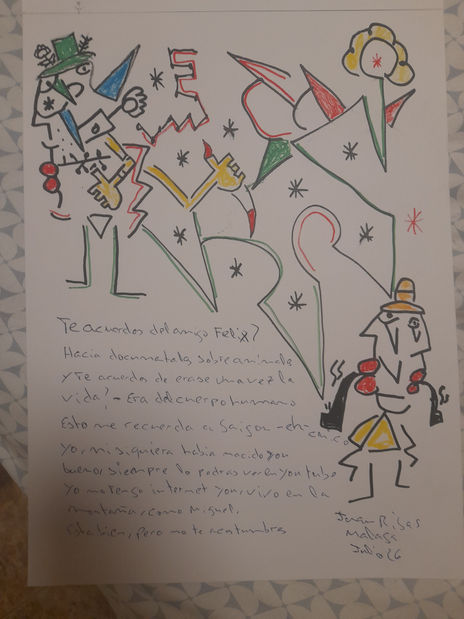 Te acuerdos del amigo Felix?
Hacia documentales sobre animale
y Te acuerdos de erase una vez la
vida? - Era del cuerpo humano
Esto me recuerda a Saigon - eh chico
yo, ni siquiera habia nacido yo
bueno, siempre lo podras ver en youtube
Yo no tengo internet yonv, vivo en la
montaña, como Miguel.
Esta bien, pero no te acostumbres
Juan Ribas
Malaga
Julio 26